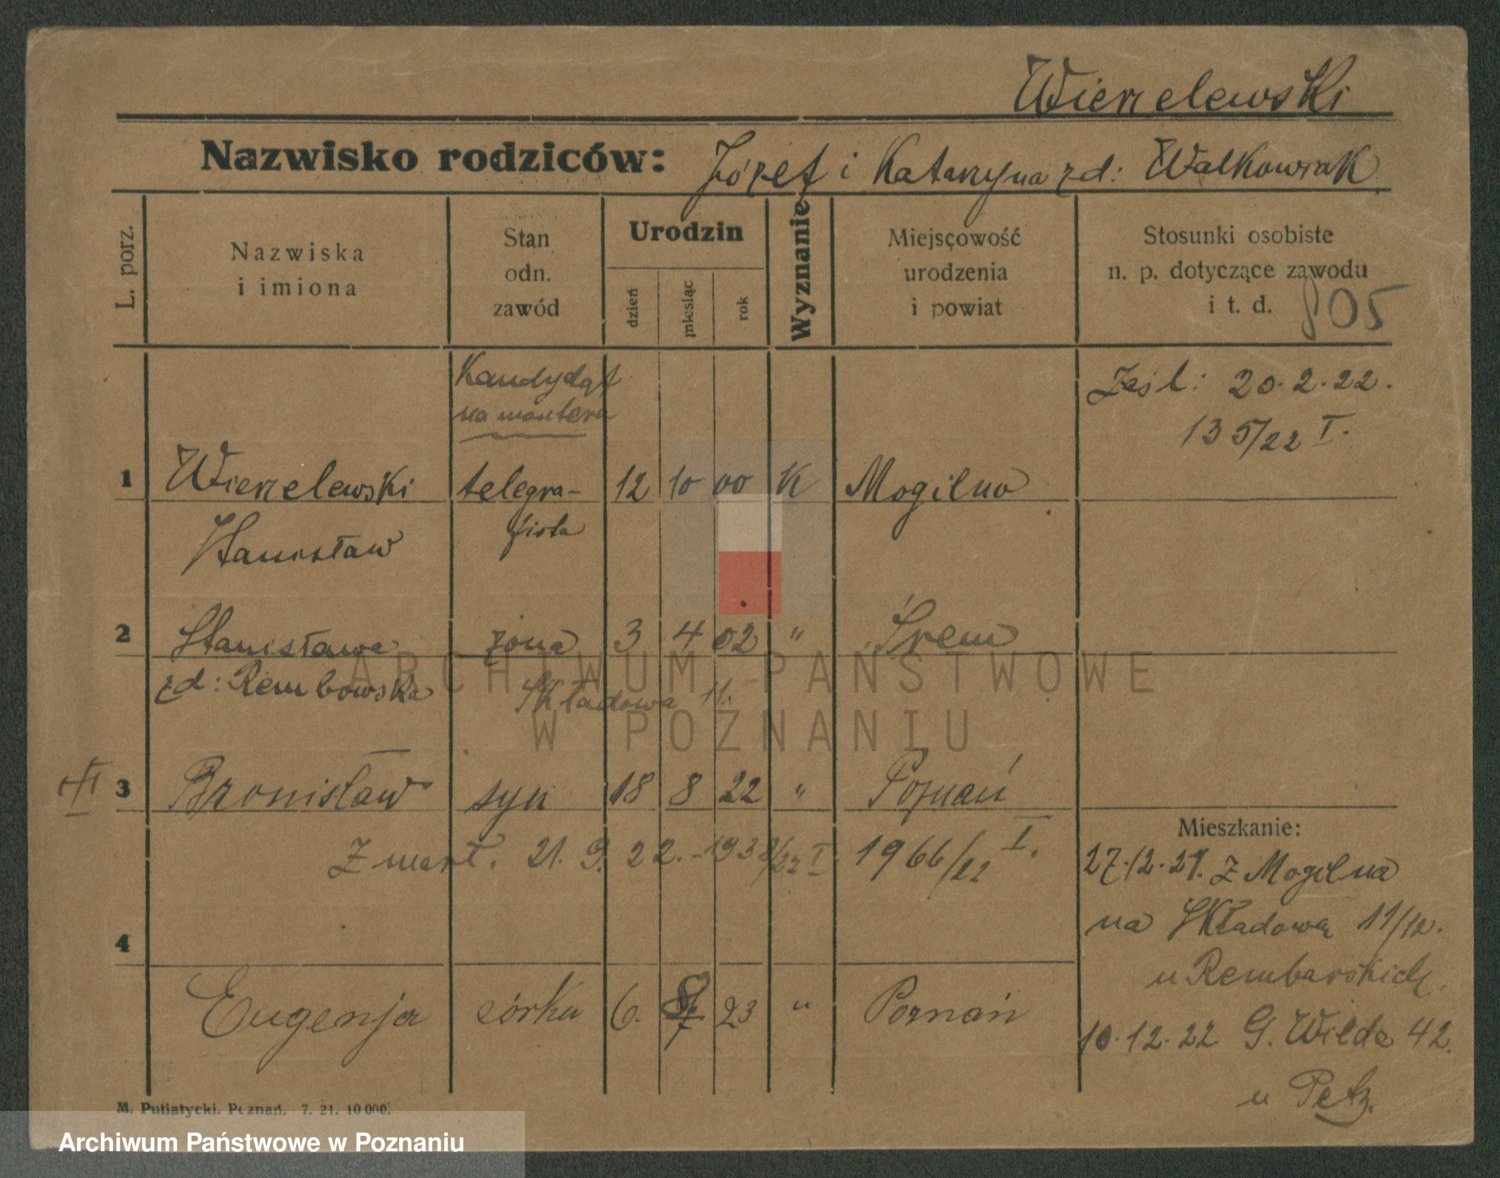 Wierzelewski
Nazwisko rodziców: Józef i Katarzyna zd: Walkowiak
L. porz.
Nazwiska i imiona
Stan odn. zawód
Urodzin
dzień miesiąc rok
Wyznanie
Miejscowość urodzenia i powiat
Stosunki osobiste n. p. dotyczące zawodu i t. d.
805
Kandydat
na montera
Zaśl: 20.2.22.
135/22 I.
1 Wierzelewski telegra- 12 10 00 K Mogilno
Stanisław fista
2 Stanisława żona 3 4 02 " Śrem
zd: Rembowska Składowa 11.
3 Bronisław syn 18 8 22 " Poznań
Zmart. 21.9.22. 1966/22 I.
Mieszkanie:
27.12.21. z Mogilna
na Składową 11/12.
u Rembarskich.
4
Eugenja córka 6. 23 " Poznań
10.12.22 G. Wilda 42.
u Petz.
M. Putiatycki, Poznań. 7. 21. 10 000.
ARCHIWUM PAŃSTWOWE
W POZNANIU
Archiwum Państwowe w Poznaniu